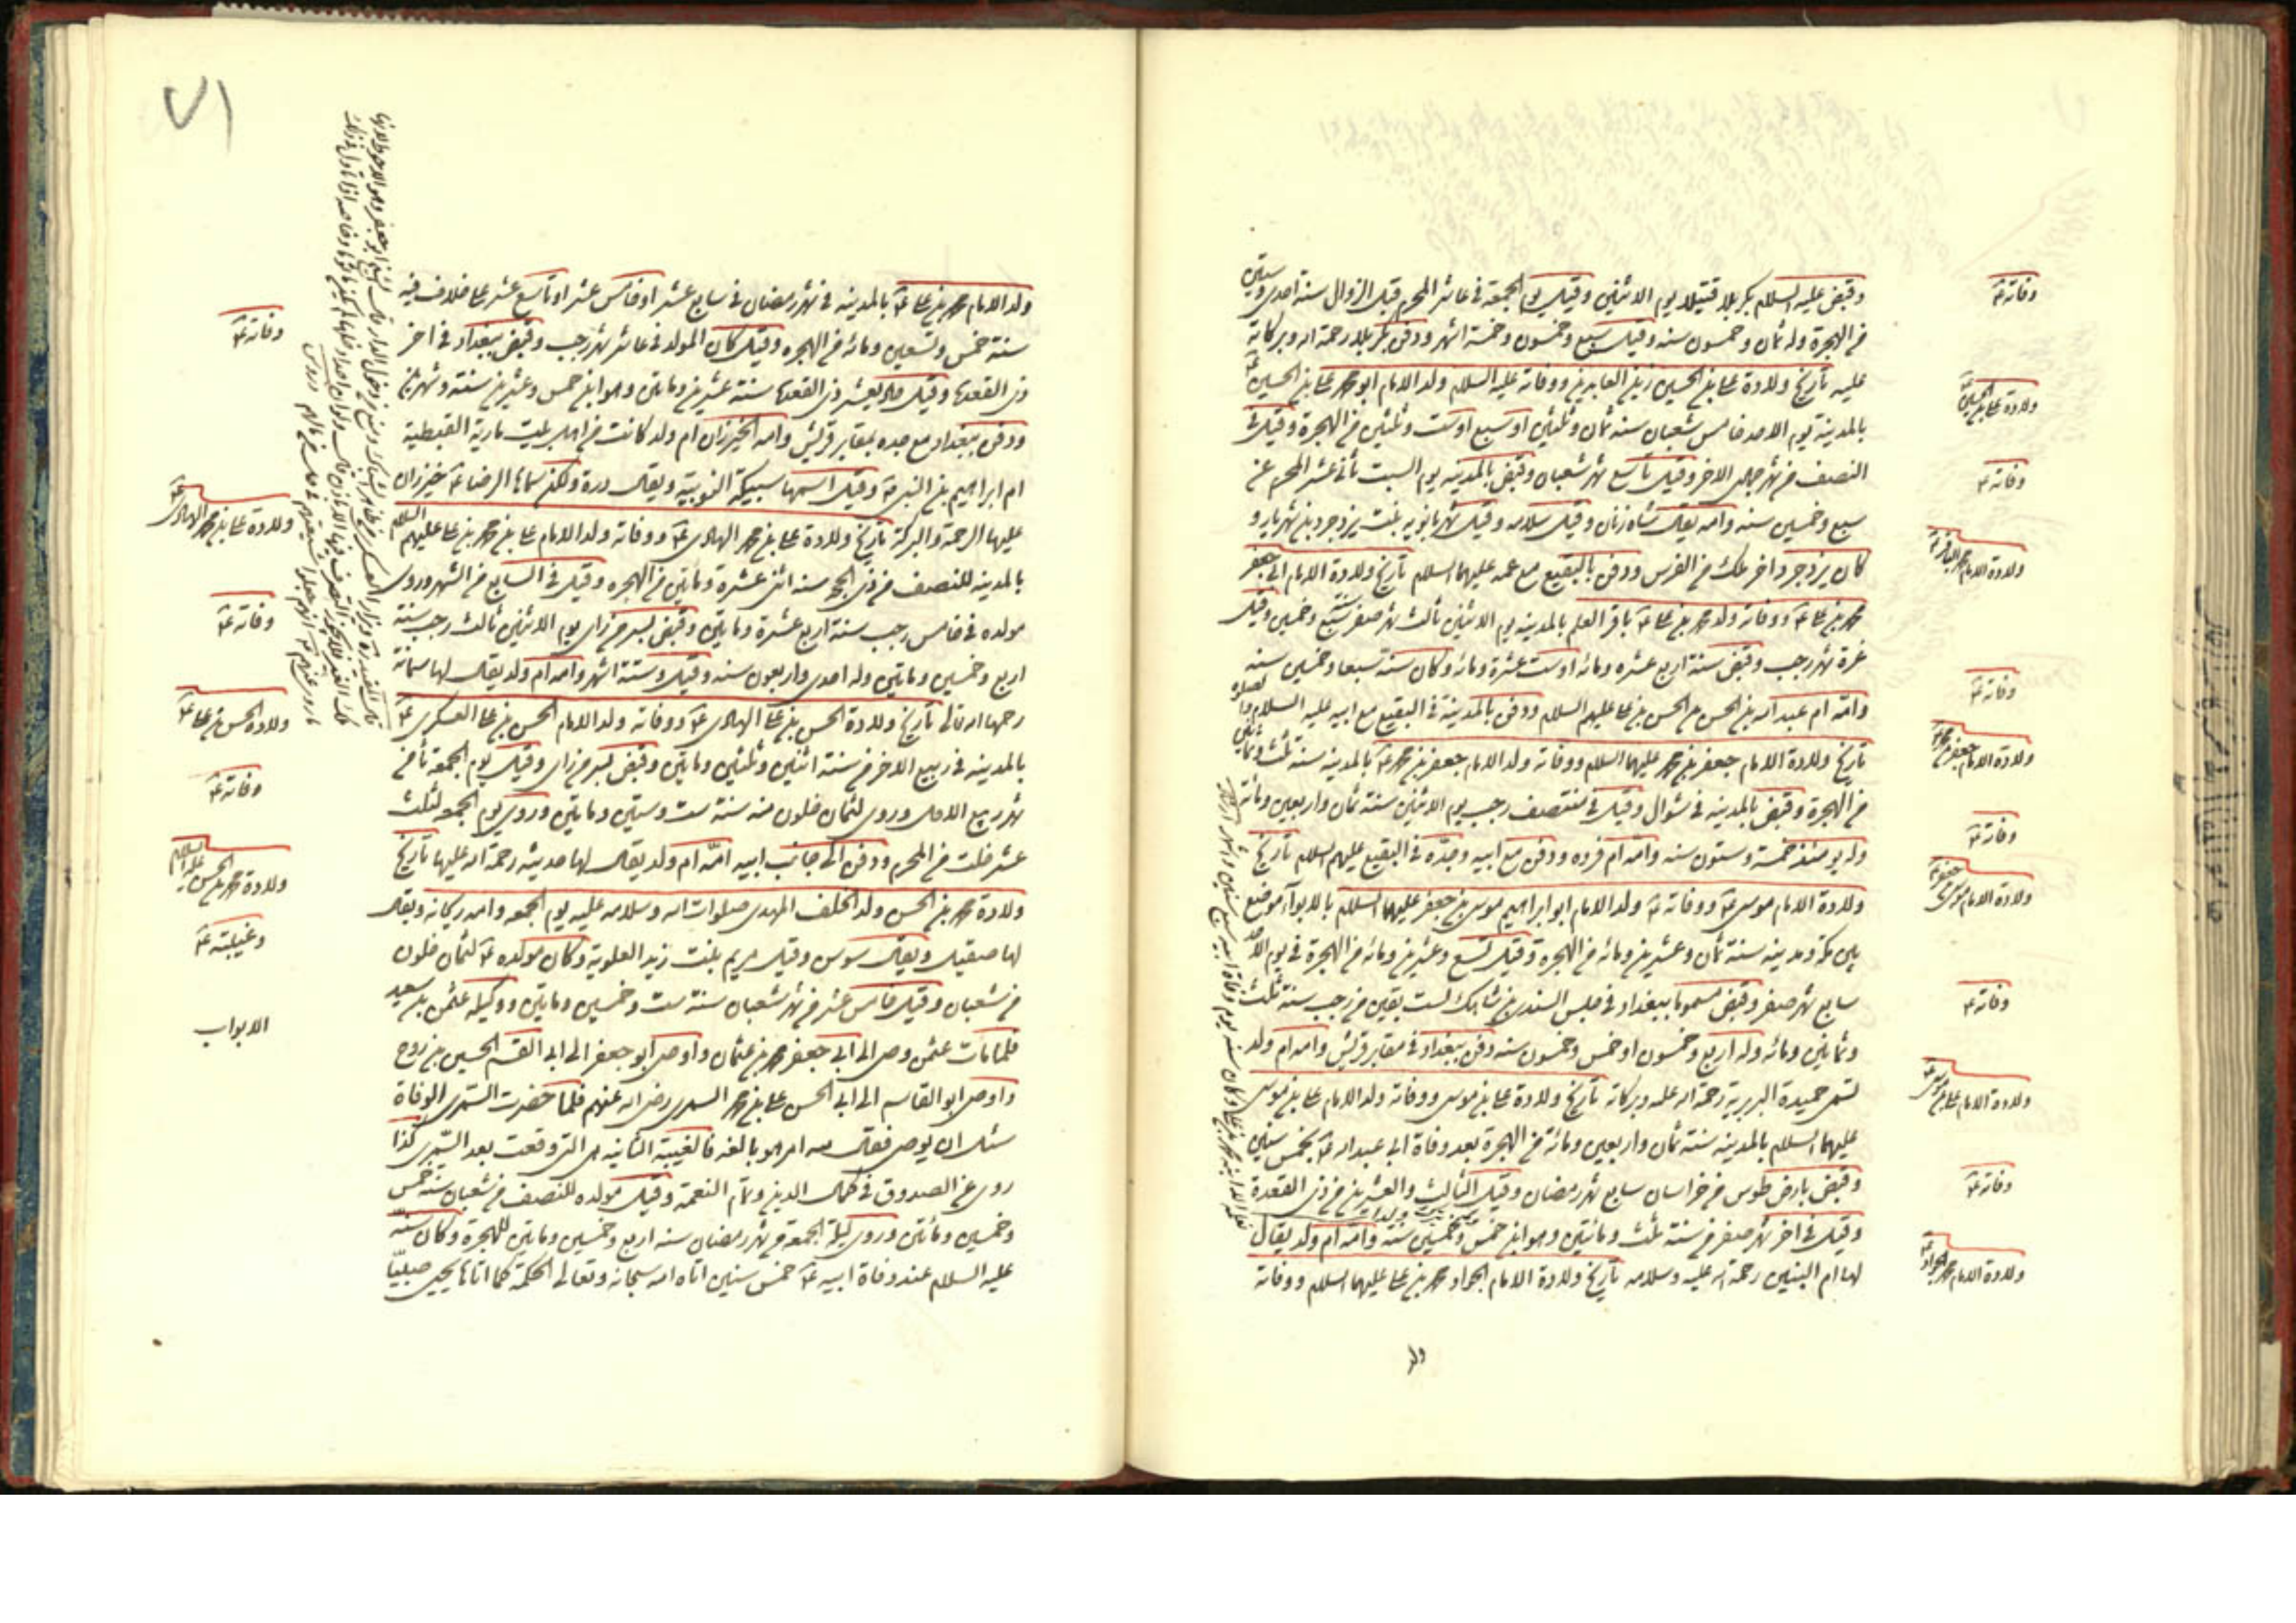 وقبض عليه السلام بكربلا قتيلا يوم الاثنين وقيل يوم الجمعة في عاشر المحرم قبل الزوال سنة احدى وستين
من الهجرة وله ثمان وخمسون سنه وقيل سبع وخمسون وخمسة اشهر ودفن بكربلا رحمة الله وبركاته
عليه تأريخ ولادة علي بن الحسين زين العابدين ووفاته عليه السلام ولد الامام ابو محمد علي بن الحسين ع
بالمدينة يوم الاحد خامس شعبان سنه ثمان وثلثين او سبع او ست وثلثين من الهجرة وقيل في
النصف من شهر جمادى الاخر وقيل تاسع شهر شعبان وقبض بالمدينه يوم السبت ثاني عشر المحرم عن
سبع وخمسين سنه وامه يقال شاه زنان وقيل سلامه وقيل شهربانويه بنت يزدجرد بن شهريار و
كان يزدجرد اخر ملك من الفرس ودفن بالبقيع مع عمه عليهما السلام تأريخ ولادة الامام ابي جعفر
محمد بن علي ع ووفاته ولد محمد بن علي ع باقر العلم بالمدينه يوم الاثنين ثالث شهر صفر سنة سبع وخمسين وقيل
غرة شهر رجب وقبض سنة اربع عشره ومائه او ست عشرة ومائه وكان سنة سبعا وخمسين سنه
وامه ام عبد الله بن الحسن بن الحسن بن علي عليهم السلام ودفن بالمدينة في البقيع مع ابيه عليه السلام
تأريخ ولادة الامام جعفر بن محمد عليهما السلام ووفاته ولد الامام جعفر بن محمد ع بالمدينه سنة ثلث وثمانين
من الهجرة وقبض بالمدينه في شوال وقيل في منتصف رجب يوم الاثنين سنة ثمان واربعين ومائه
وله يومئذ خمسة وستون سنه وامه ام فروه ودفن مع ابيه وجده في البقيع عليهم السلام تأريخ
ولادة الامام موسى ع ووفاته ع ولد الامام ابو ابراهيم موسى بن جعفر عليهما السلام بالابوآء موضع
بين مكه ومدينه سنة ثمان وعشرين ومائه من الهجره وقيل تسع وعشرين ومائه من الهجرة في يوم الاحد
سابع شهر صفر وقبض مسموما ببغداد في حبس السندي بن شاهك لست بقين من رجب سنة ثلث
وثمانين ومائه وله اربع وخمسون او خمس وخمسون سنه ودفن ببغداد في مقابر قريش وامه ام ولد
تسمى حميدة البربرية رحمة الله عليه وبركاته تأريخ ولادة علي بن موسى ووفاته ولد الامام علي بن موسى
عليهما السلام بالمدينه سنة ثمان واربعين ومائة من الهجرة بعد وفاة ابي عبد الله ع بخمس سنين
وقبض بارض طوس من خراسان سابع شهر رمضان وقيل الثالث والعشرين من ذي القعدة
وقيل في اخر شهر صفر من سنة ثلث ومائتين وهو ابن خمس وخمسين سنه وامه ام ولد يقال
لها ام البنين رحمة الله عليه وسلامه تأريخ ولادة الامام الجواد محمد بن علي عليهما السلام ووفاته
ولد
وفاته ع
ولادة علي بن الحسين ع
وفاته ع
ولادة الامام محمد الباقر ع
وفاته ع
ولادة الامام جعفر بن محمد ع
وفاته ع
ولادة الامام موسى بن جعفر ع
وفاته ع
ولادة الامام علي بن موسى ع
وفاته ع
ولادة الامام محمد الجواد ع
٧١
ولد الامام محمد بن علي ع بالمدينه في شهر رمضان في سابع عشر او خامس عشر او تاسع عشر علي خلاف فيه
سنة خمس وتسعين ومائه من الهجره وقيل كان المولد في عاشر شهر رجب وقبض ببغداد في اخر
ذي القعدة وقيل حادي عشر ذي القعدة سنة عشرين ومايتين وهو ابن خمس وعشرين سنة وشهرين
ودفن ببغداد مع جده بمقابر قريش وامه الخيزران ام ولد كانت من اهل بيت مارية القبطية
ام ابراهيم بن النبي وقيل اسمها سبيكة النوبية ويقال درة ولكن سماها الرضا ع خيزران
عليها الرحمة والبركة تأريخ ولادة علي بن محمد الهادي ع ووفاته ولد الامام علي بن محمد بن علي عليهم السلام
بالمدينه للنصف من ذي الحجه سنه اثني عشرة ومايتين من الهجره وقيل في السابع من الشهر وروي
مولده في خامس رجب سنة اربع عشرة ومايتين وقبض بسر من راى يوم الاثنين ثالث رجب سنة
اربع وخمسين ومايتين وله احدى واربعون سنه وقيل وستة اشهر وامه ام ولد يقال لها سمانة
رحمها الله تعالى تأريخ ولادة الحسن بن علي الهادي ع ووفاته ولد الامام الحسن بن علي العسكري ع
بالمدينه في ربيع الاخر من سنة اثنين وثلثين ومايتين وقبض بسر من راى وقيل يوم الجمعه ثامن
شهر ربيع الاول وروي لثمان خلون منه سنة ست وستين ومايتين وروي يوم الجمعه لثلث
عشر خلت من المحرم ودفن الى جانب ابيه امه ام ولد يقال لها حديثه رحمة الله عليها تأريخ
ولادة محمد بن الحسن ولد الخلف المهدي صلوات الله وسلامه عليه يوم الجمعه وامه ريحانه ويقال
لها صيقيل ويقال سوسن وقيل مريم بنت زيد العلوية وكان مولده ع لثمان خلون
من شعبان وقيل خامس عشر من شهر شعبان سنة ست وخمسين ومايتين ووكيله عثمن بن سعيد
فلما مات عثمن وصى الى ابي جعفر محمد بن عثمان واوصى ابو جعفر الى ابي القسم الحسين بن روح
واوصى ابو القاسم الى ابي الحسن علي بن محمد السمري رضي الله عنهم فلما حضرت السمري الوفاة
سئل ان يوصي فقال لله امر هو بالغه فالغيبة الثانيه هي التي وقعت بعد السمري كذا
روي عن الصدوق في كمال الدين وتمام النعمة وقيل مولده للنصف من شعبان سنة خمس
وخمسين ومائتين وروي ليلة الجمعه من شهر رمضان سنه اربع وخمسين ومايتين للهجرة وكان سنه
عليه السلام عند وفاة ابيه ع خمس سنين اتاه الله سبحانه وتعالى الحكمة كما اتاها يحيى صبيا
وفاته ع
ولادة علي بن محمد الهادي ع
وفاته ع
ولادة الحسن بن علي ع
وفاته ع
ولادة محمد بن الحسن عليه السلام
وغيبته ع
الابواب